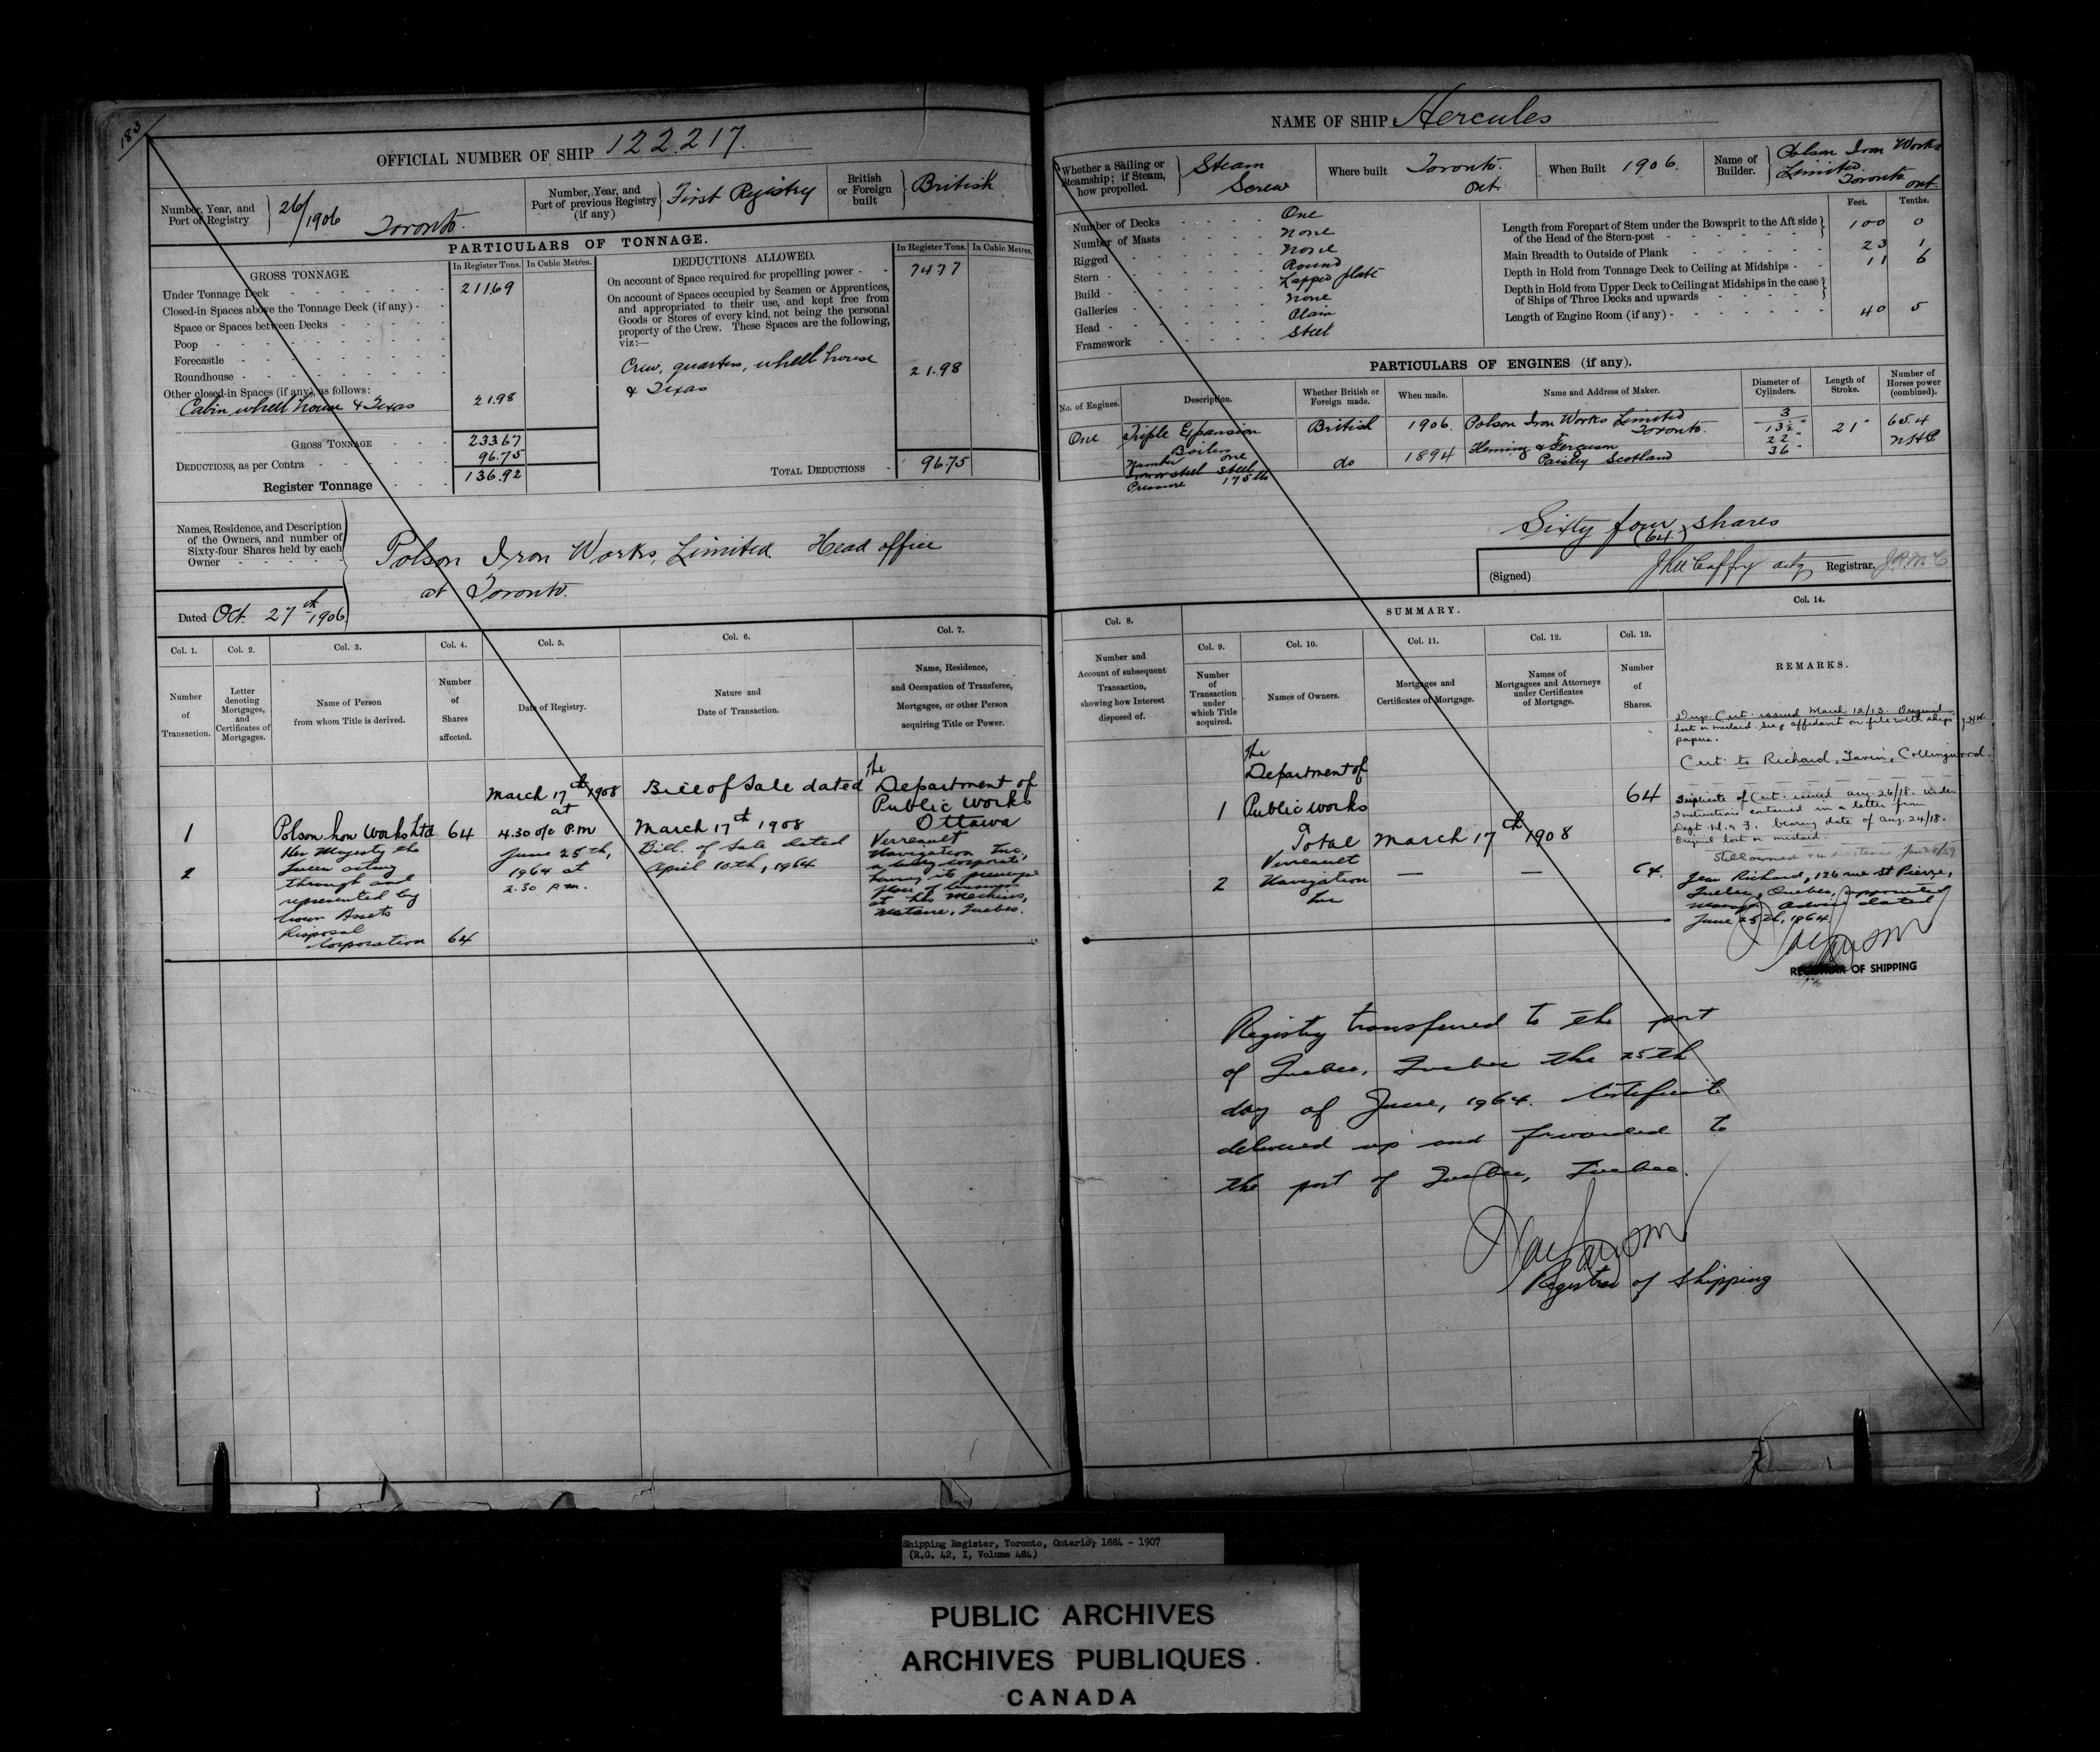 183
OFFICIAL NUMBER OF SHIP 122.217.
Number, Year, and
Port of Registry
26/1906 Toronto.
Number, Year, and
Port of previous Registry
(if any)
First Registry
British
or Foreign
built
British
PARTICULARS OF TONNAGE.
GROSS TONNAGE.
In Register Tons. In Cubic Metres.
Under Tonnage Deck 211.69
Closed-in Spaces above the Tonnage Deck (if any)
Space or Spaces between Decks
Poop
Forecastle
Roundhouse
Other closed-in Spaces (if any), as follows:
Cabin wheel house & Texas 21.98
GROSS TONNAGE 233.67
DEDUCTIONS, as per Contra 96.75
Register Tonnage 136.92
DEDUCTIONS ALLOWED.
In Register Tons. In Cubic Metres.
On account of Space required for propelling power 74.77
On account of Spaces occupied by Seamen or Apprentices,
and appropriated to their use, and kept free from
Goods or Stores of every kind, not being the personal
property of the Crew. These Spaces are the following,
viz:—
Crew, quarters, wheel house
& Texas 21.98
TOTAL DEDUCTIONS 96.75
Names, Residence, and Description
of the Owners, and number of
Sixty-four Shares held by each
Owner
Polson Iron Works, Limited Head office
at Toronto.
Dated Oct. 27th 1906
Col. 1. Col. 2. Col. 3. Col. 4. Col. 5. Col. 6. Col. 7.
Number
of
Transaction.
Letter
denoting
Mortgages,
and
Certificates of
Mortgages.
Name of Person
from whom Title is derived.
Number
of
Shares
affected.
Date of Registry.
Nature and
Date of Transaction.
Name, Residence,
and Occupation of Transferee,
Mortgagee, or other Person
acquiring Title or Power.
1 Polson Iron Works Ltd 64
March 17th 1908
at
4.30 o/c P.M
Bill of Sale dated
March 17th 1908
The
Department of
Public Works
Ottawa
2 Her Majesty the
Queen acting
through and
represented by
Crown Assets
Disposal
Corporation 64
June 25th,
1964 at
2.30 P.M.
Bill of Sale dated
April 10th, 1964
Verreault
Navigation Inc.,
a body corporate,
having its principal
place of business
at Les Mechins,
Matane, Quebec.
NAME OF SHIP Hercules
Whether a Sailing or
Steamship; if Steam,
how propelled.
Steam
Screw
Where built Toronto.
Ont
When Built 1906.
Name of
Builder.
Polson Iron Works
Limited
Toronto
Ont.
Number of Decks One
Number of Masts None
Rigged None
Stern Round
Build Lapped plate
Galleries None
Head Plain
Framework Steel
Feet. Tenths.
Length from Forepart of Stem under the Bowsprit to the Aft side
of the Head of the Stern-post 100 0
Main Breadth to Outside of Plank 23 1
Depth in Hold from Tonnage Deck to Ceiling at Midships 11 6
Depth in Hold from Upper Deck to Ceiling at Midships in the case
of Ships of Three Decks and upwards
Length of Engine Room (if any) 40 5
PARTICULARS OF ENGINES (if any).
No. of Engines.
Description.
Whether British or
Foreign made.
When made.
Name and Address of Maker.
Diameter of
Cylinders.
Length of
Stroke.
Number of
Horses power
(combined).
One Triple Expansion British 1906. Polson Iron Works Limited
Toronto.
3
13½"
22"
36"
21"
65.4
NHP
Boilers
Number one
Iron or steel Steel
Pressure 175 lbs
do 1894 Fleming & Ferguson
Paisley Scotland
Sixty four shares
(64.)
(Signed) Registrar.
SUMMARY.
Col. 8. Col. 9. Col. 10. Col. 11. Col. 12. Col. 13. Col. 14.
Number and
Account of subsequent
Transaction,
showing how Interest
disposed of.
Number
of
Transaction
under
which Title
acquired.
Names of Owners.
Mortgages and
Certificates of Mortgage.
Names of
Mortgagees and Attorneys
under Certificates
of Mortgage.
Number
of
Shares.
REMARKS.
Dup. Cert. issued March 12/13. Original
lost or mislaid. See affidavit on file with ships
papers.
Cert. to Richard, Collingwood.
Duplicate of Cert. issued Aug. 26/18. under
instructions contained in a letter from
Dept. M. & F. bearing date of Aug. 24/18.
Original lost or mislaid.
Still owned
1 The
Department of
Public works 64
Total March 17th 1908
2 Verreault
Navigation
Inc — — 64.
Jean Richard, 126 rue St Pierre,
Quebec, Quebec, appointed
Manager, advice dated
June 25th, 1964
REGISTRAR OF SHIPPING
Registry transferred to the port
of Quebec, Quebec the 25th
day of June, 1964. Certificate
delivered up and forwarded to
the port of Quebec, Quebec.
Registrar of Shipping
Shipping Register, Toronto, Ontario, 1884 - 1907
(R.G. 42, I, Volume 484)
PUBLIC ARCHIVES
ARCHIVES PUBLIQUES
CANADA